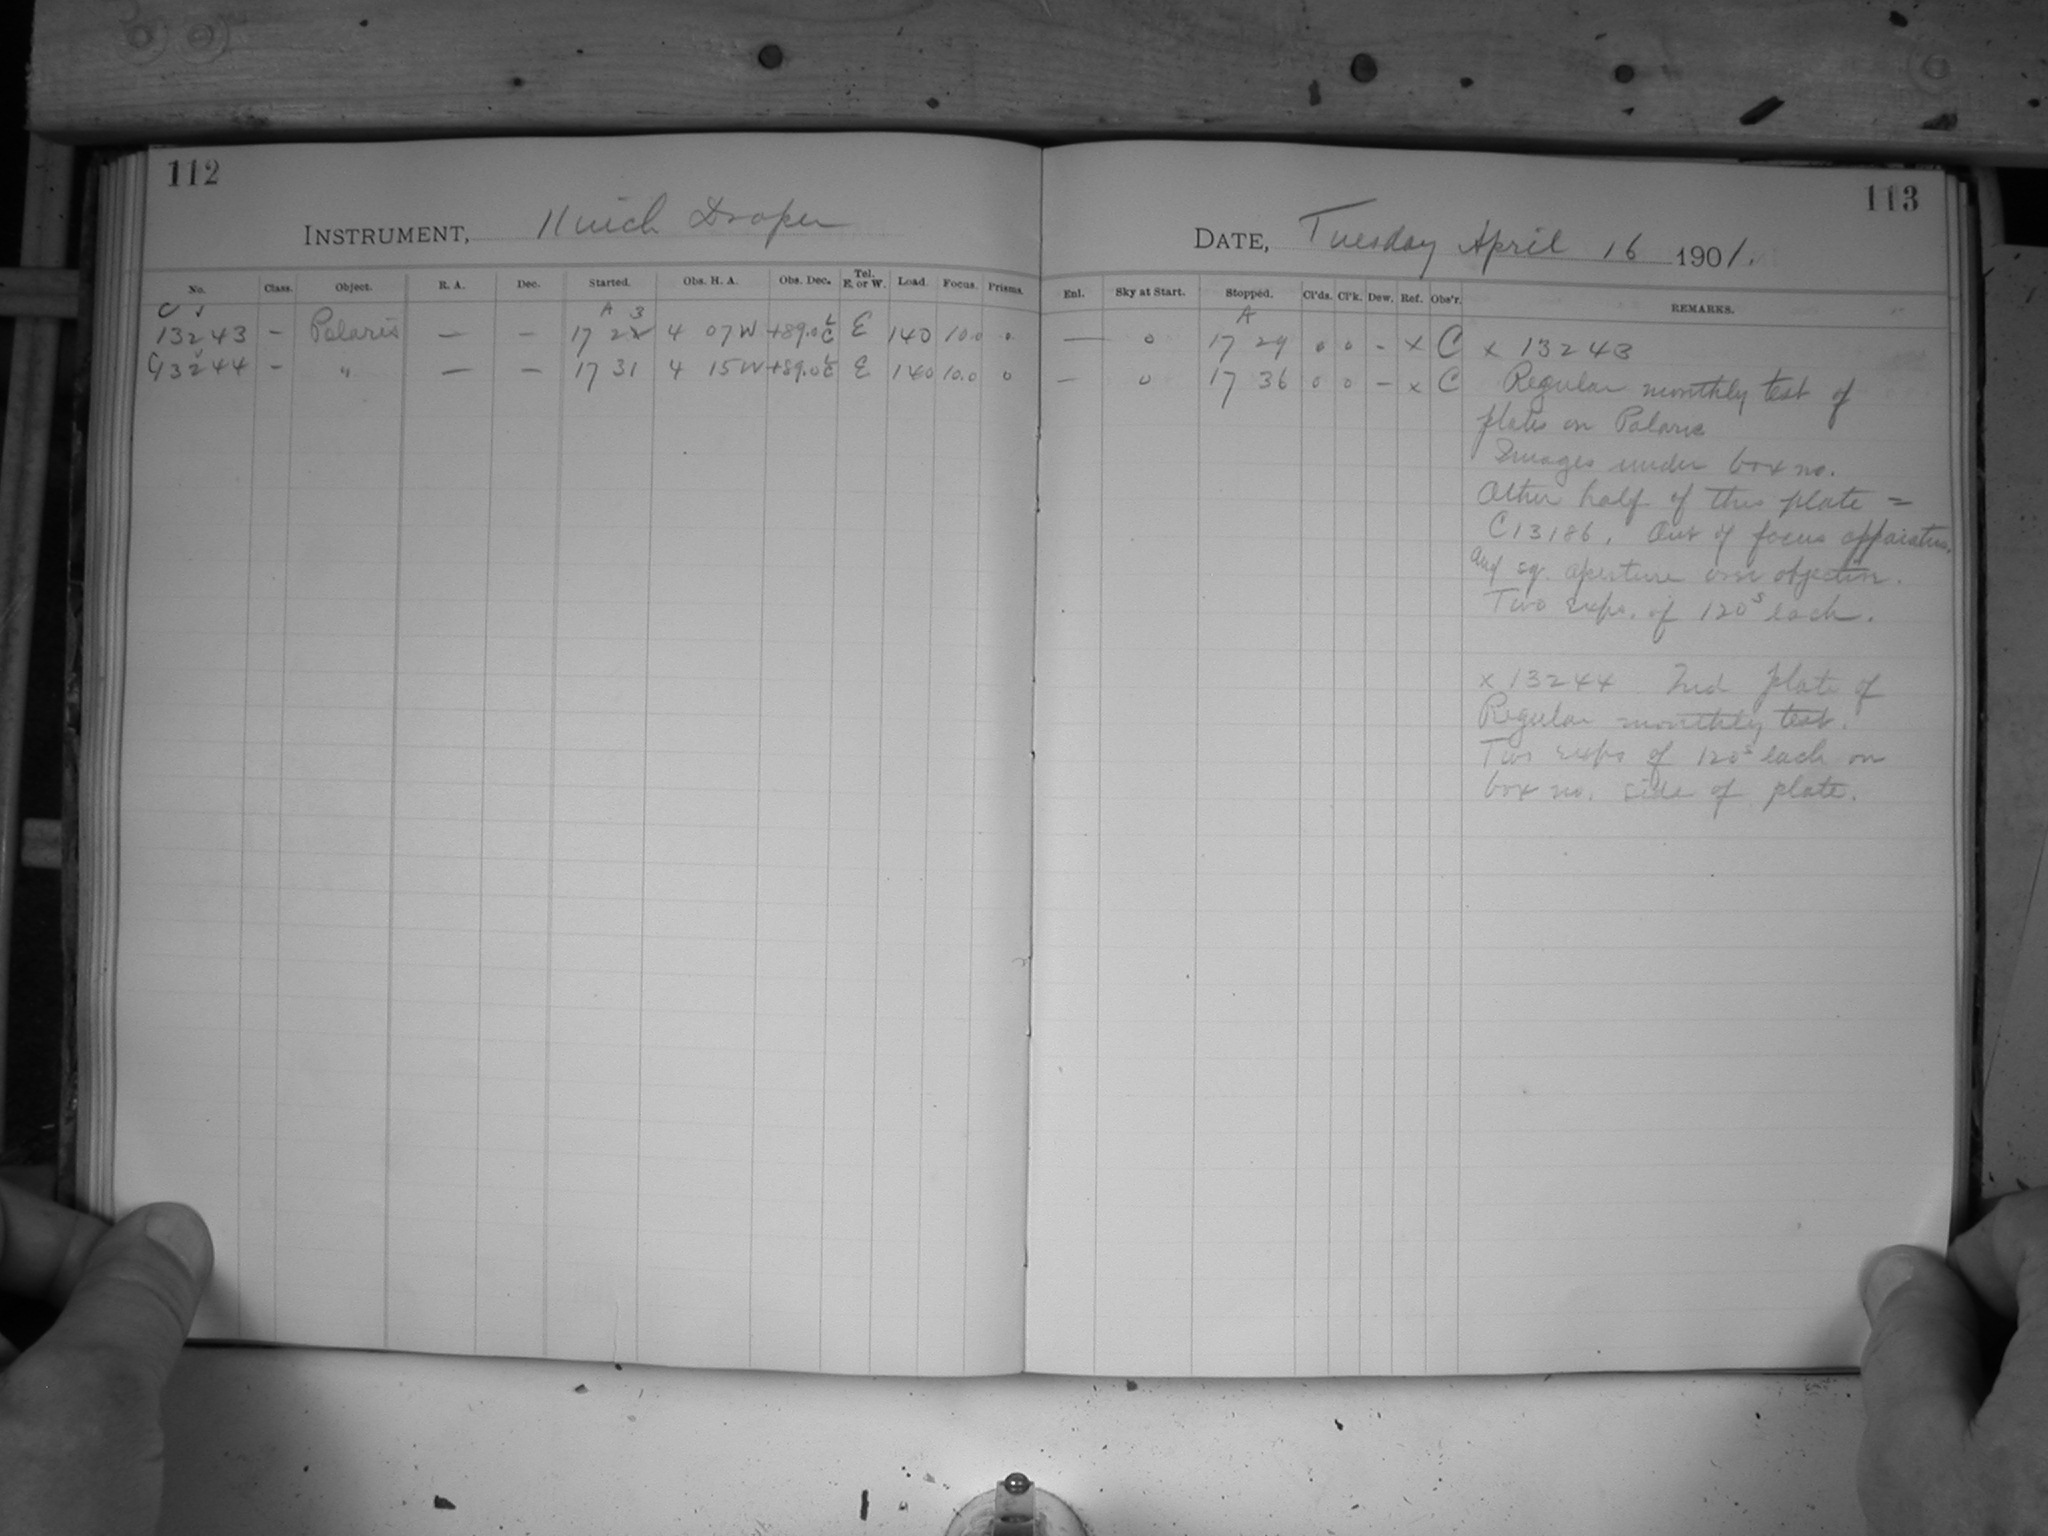 112
INSTRUMENT, 11 inch Draper
No. Class. Object. R. A. Dec. Started. Obs. H. A. Obs. Dec. Tel. E. or W. Load. Focus. Prisms.
C A 3
13243 — Polaris — — 17 2 4 07 W +89.0 E 140 10.0 0
C13244 — " — — 17 31 4 15 W +89.0 E 140 10.0 0
113
DATE, Tuesday April 16 1901.
Enl. Sky at Start. Stopped. Cl'ds. Cl'k. Dew. Ref. Obs'r. REMARKS.
A
— 0 17 29 0 0 - x C x 13243
— 0 17 36 0 0 - x C Regular monthly test of
plates on Polaris
Images under box no.
Other half of this plate =
C13186. Out of focus apparatus.
and sq. aperture over objective.
Two exps. of 120s each.
x 13244 2nd plate of
Regular monthly test.
Two exps of 120s each on
box no. side of plate.